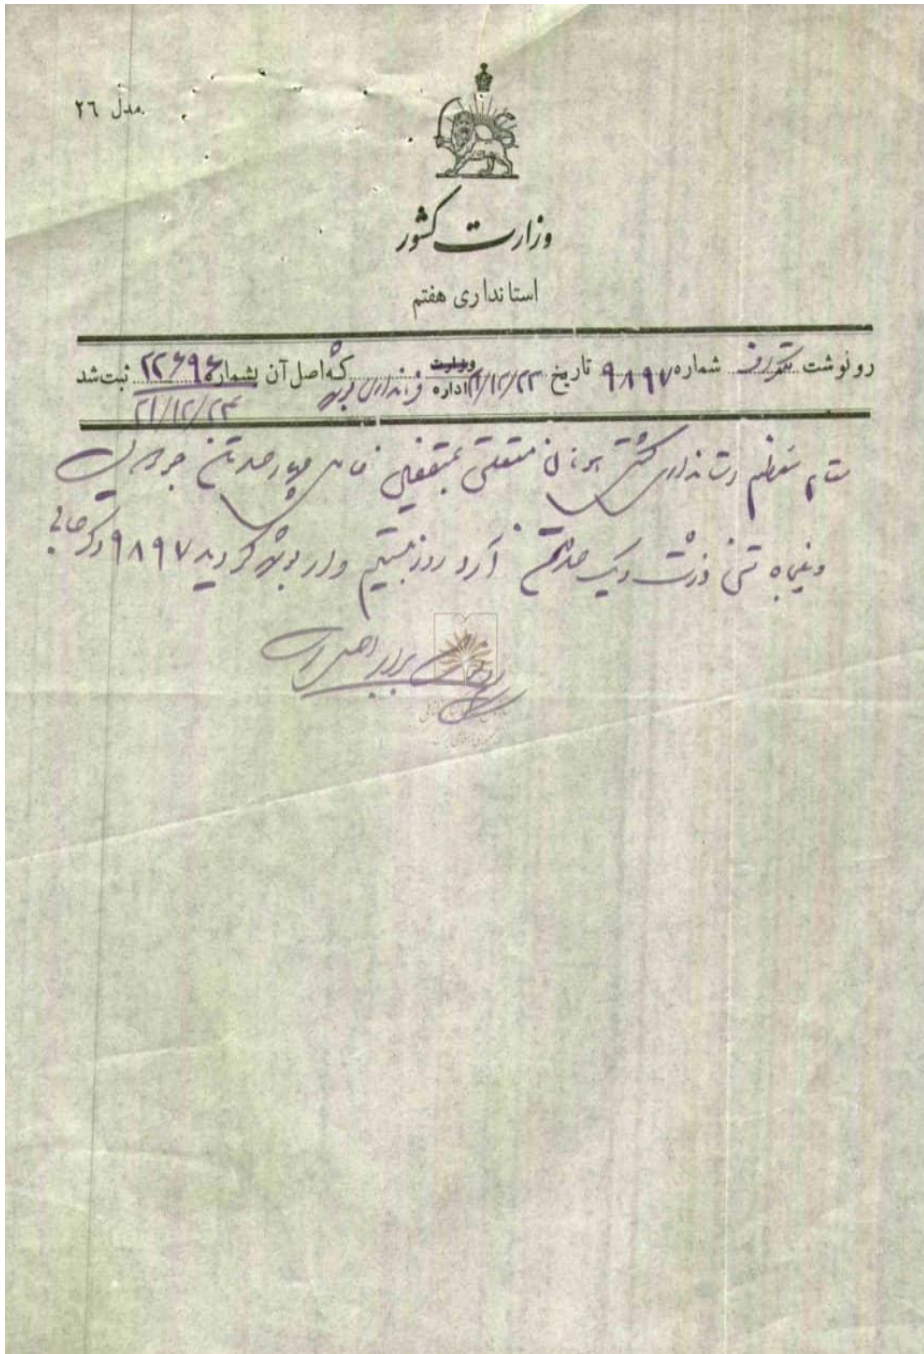 مدل ۲۶
وزارت کشور
استانداری هفتم
رونوشت تلگراف شماره ۹۸۹۷ تاریخ ۲۱/۱۲/۲۳ وزارت اداره فرمانداری بوشهر که اصل آن بشماره ۲۲۶۹۶ ثبت شد
۲۱/۱۲/۲۴
مقام معظم استانداری کشتی چهار صد تن جو
و پنجاه تن ذرت و یک صد تن آرد روز بیستم وارد بوشهر گردید ۹۸۹۷
رونوشت برابر اصل است